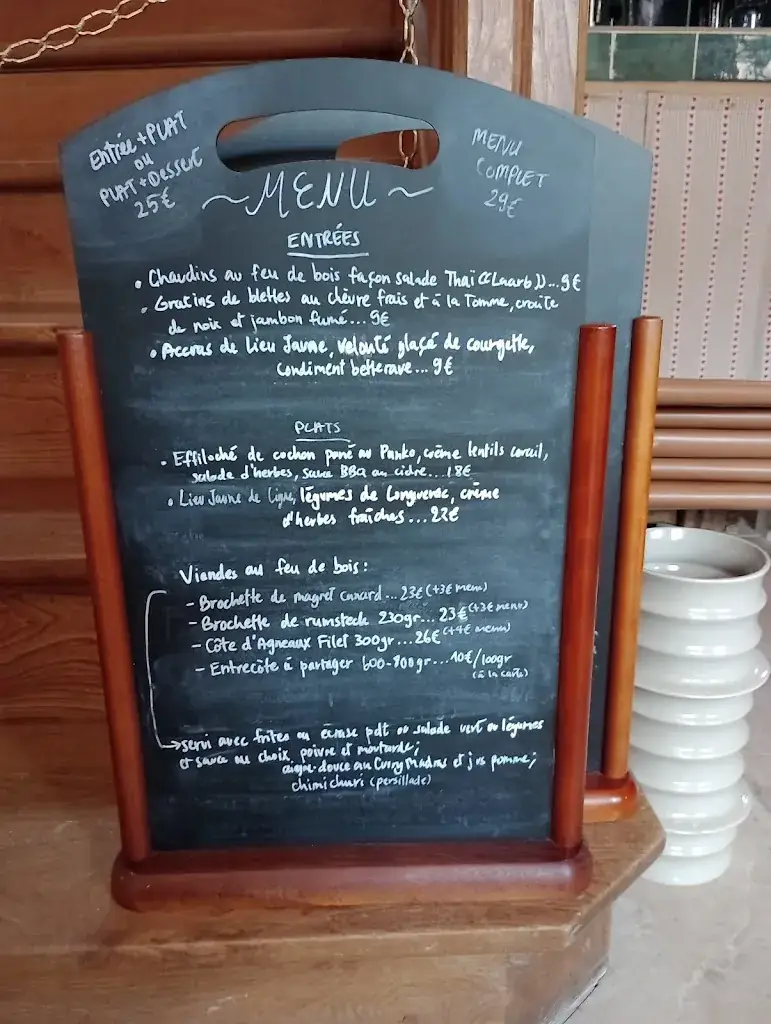 Entrée+PLAT
ou
PLAT+Dessert
25€
MENU
COMPLET
29€
~MENU~
ENTRÉES
• Chaudins au feu de bois façon salade Thaï ((Laarb))...9€
• Gratins de blettes au chèvre frais et à la Tomme, croûte
de noix et jambon fumé...9€
• Accras de Lieu Jaune, velouté glacé de courgette,
condiment betterave...9€
PLATS
• Effiloché de cochon pané au Panko, crème lentils corail,
salade d'herbes, sauce BBQ au cidre...18€
• Lieu Jaune de Ligne, légumes de Longueric, crème
d'herbes fraîches...22€
Viandes au feu de bois:
- Brochette de magret canard...23€ (+3€ menu)
- Brochette de rumsteck 230gr...23€ (+3€ menu)
- Côte d'Agneaux Filet 300gr...26€ (+4€ menu)
- Entrecôte à partager 600-800gr...10€/100gr
(à la carte)
→servi avec frites ou écrasé pdt ou salade vert ou légumes
et sauce au choix, poivre et moutarde;
aigre-douce au Curry Madras et jus pomme;
chimichuri (persillade)